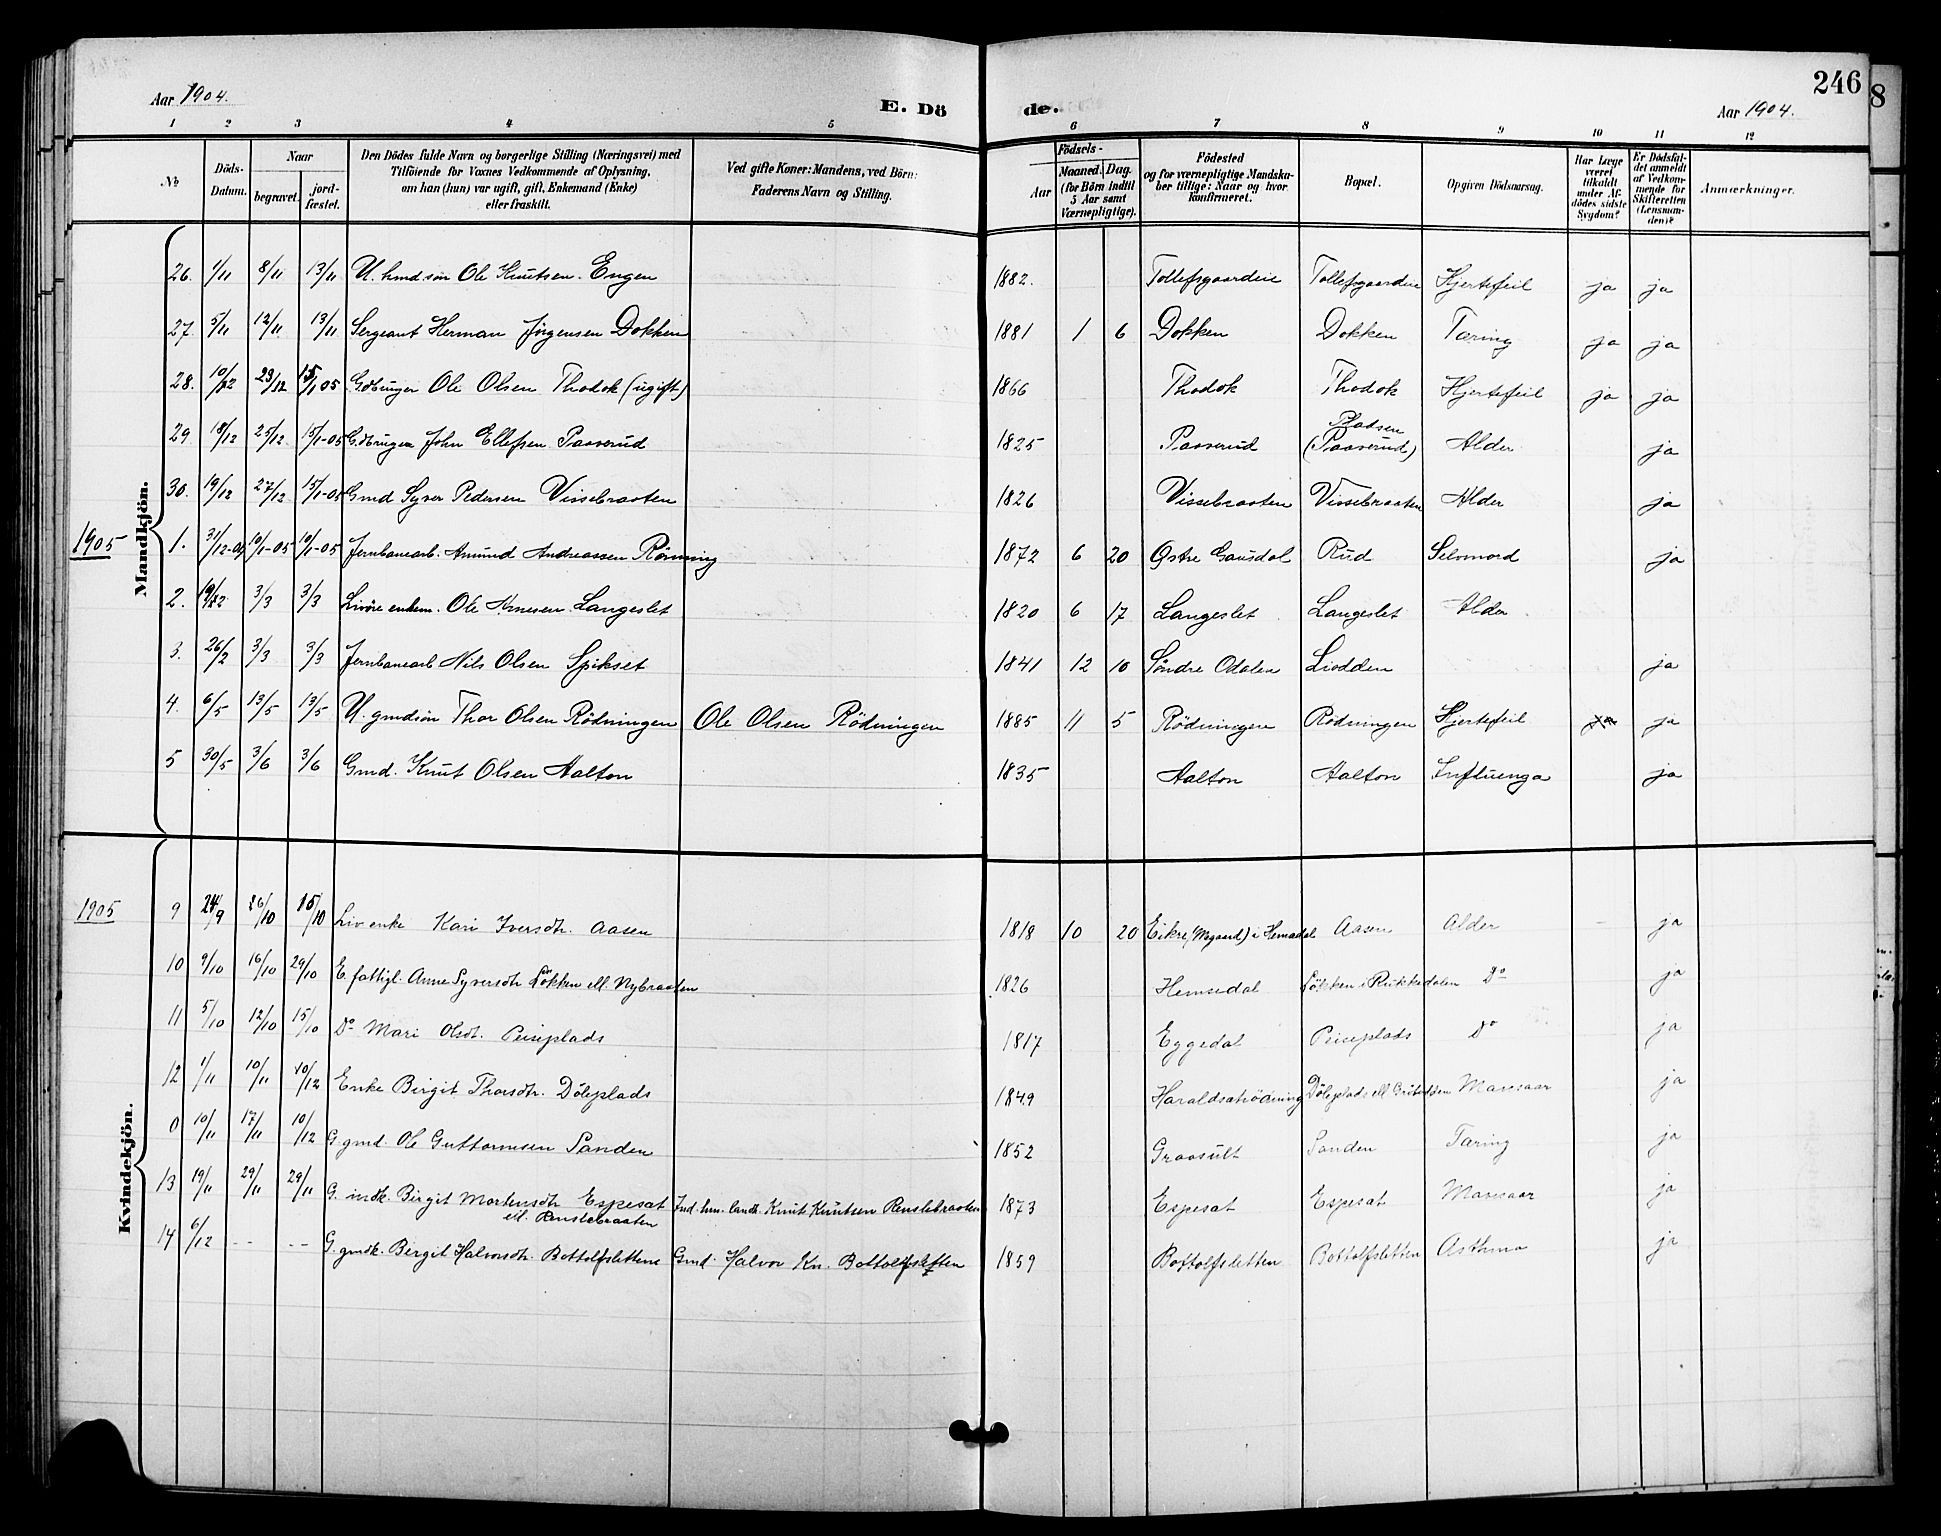 Aar 1904.
E. Dö
de.
246
8
Aar 1904.
1 2 3 4 5 6 7 8 9 10 11 12
№
Döds-Datum.
Naar
begravet.
jord-fæstet.
Den Dödes fulde Navn og borgerlige Stilling (Næringsvei) med
Tilföiende for Voxnes Vedkommende af Oplysning,
om han (hun) var ugift, gift, Enkemand (Enke)
eller fraskilt.
Ved gifte Koner: Mandens, ved Börn:
Faderens Navn og Stilling.
Födsels-
Aar
Maaned. Dag.
(for Börn indtil
5 Aar samt
Værnepligtige).
Födested
og for værnepligtige Mandska-
ber tillige: Naar og hvor
konfirmeret.
Bopæl.
Opgiven Dödsaarsag.
Har Læge
været
tilkaldt
under Af-
dödes sidste
Sygdom?
Er Dödsfal-
det anmeldt
af Vedkom-
mende for
Skifteretten
(Lensman-
den)?
Anmærkninger.
Mandkjön.
26. 1/11 8/11 13/11 U. hmd.sön Ole Knutsen Engen 1882. Tollefsgaardeie Tollefsgaardeie Hjertefeil ja ja
27. 5/11 12/11 13/11 Sergeant Herman Jörgensen Dokken 1881 1 6 Dokken Dokken Tæring ja ja
28. 10/12 23/12 15/1 05 Gdbruger Ole Olsen Thodok (ugift) 1866 Thodok Thodok Hjertefeil ja ja
29 18/12 25/12 15/1-05 Gdbruger John Ellefsen Paaverud 1825 Paaverud Pladsen (Paaverud) Alder ja
30. 19/12 27/12 15/1-05 Gmd Syver Pedersen Vissebraaten 1826 Vissebraaten Vissebraaten Alder ja
1905 1. 31/12-04 10/1-05 10/1-05 Jernbanearb. Amund Andreassen Rönning 1872 6 20 Østre Gausdal Rud Selvmord ja
2. 19/2 3/3 3/3 Livöre enkem. Ole Arnesen Langeslet 1820 6 17 Langeslet Langeslet Alder
3. 26/2 3/3 3/3 Jernbanearb Nils Olsen Spikset 1841 12 10 Söndre Odalen Liodden ja
4. 6/5 13/5 13/5 U. gmdsön Thor Olsen Rödningen Ole Olsen Rödningen 1885 11 5 Rödningen Rödningen Hjertefeil ja ja
5 30/5 3/6 3/6 Gmd. Knut Olsen Aalton 1835 Aalton Aalton Influenza ja
Kvindekjön.
1905 9 24/9 26/10 15/10 Liv enke Kari Iversdtr. Aasen 1818 10 20 Eikre i Hemsedal Aasen Alder ja
10 9/10 16/10 29/10 E. fattigl. Anne Syversdtr Lökken ell. Nybraaten 1826 Hemsedal Lökken i Rukkedalen Do ja
11 5/10 12/10 15/10 Do Mari Olsdt. Peiseplads 1817 Eggedal Peiseplads Do ja
12 1/11 10/11 10/12 Enke Birgit Thorsdtr. Döleplads 1849 Haraldsetrödning Döleplads ell Marasaar ja
0 10/11 17/11 10/12 G. gmd. Ole Guttormsen Sanden 1852 Graasult Sanden Tæring ja
13 19/11 29/11 29/11 G. indk. Birgit Mortensdtr Espesat Ind. hm. landh. Knut Knutsen Renslebraaten 1873 Espesat Espesat Marasaar ja
ell. Renslebraaten
14 6/12 -- -- G. gmdk. Birgit Halvorsdtr. Bottolfsletten Gmd. Halvor Kn. Bottolfsletten 1859 Bottolfsletten Bottolfsletten Asthma ja